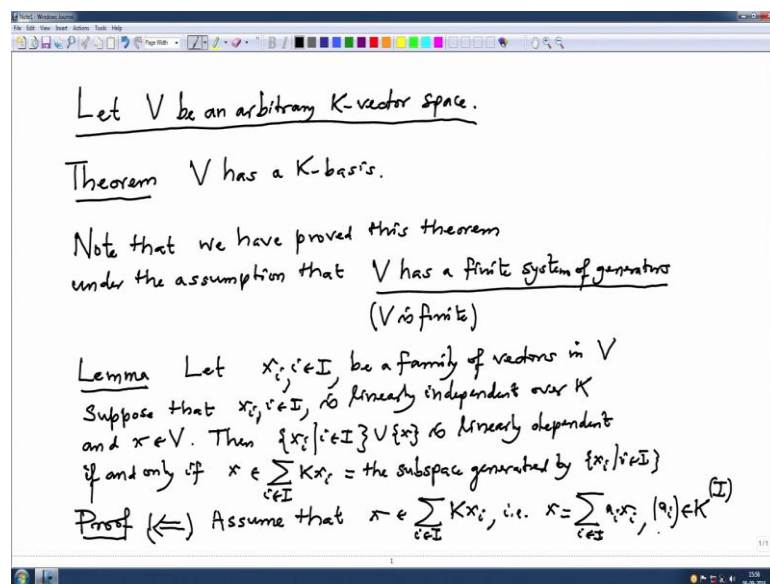 Note1 - Windows Journal
File Edit View Insert Actions Tools Help
Page Width
B I
Let V be an arbitrary K-vector space.
Theorem V has a K-basis.
Note that we have proved this theorem
under the assumption that V has a finite system of generators
(V is finite)
Lemma Let x_i, i∈I, be a family of vectors in V
Suppose that x_i, i∈I, is linearly independent over K
and x∈V. Then {x_i | i∈I} ∪ {x} is linearly dependent
if and only if x ∈ ∑_{i∈I} Kx_i = the subspace generated by {x_i | i∈I}
Proof (⇐) Assume that x ∈ ∑_{i∈I} Kx_i, i.e. x = ∑_{i∈I} a_i x_i, (a_i) ∈ K^{(I)}
1/1
1
15:56